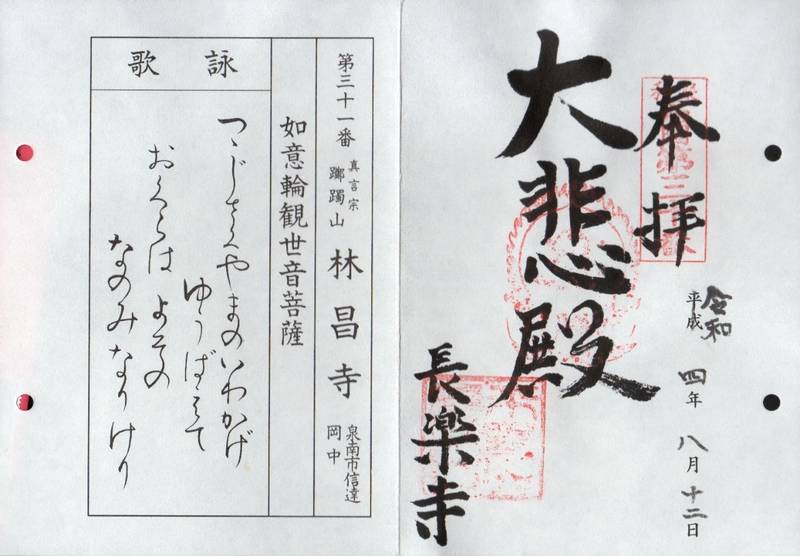 奉拝
大悲殿
長楽寺
令和
平成 四年 八月 十二日
第三十一番 真言宗 躑躅山 林昌寺 泉南市信達岡中
如意輪観世音菩薩
詠歌
つゝじさくやまのいわかげ
ゆうばえて
おくらは よその
なのみなりけり